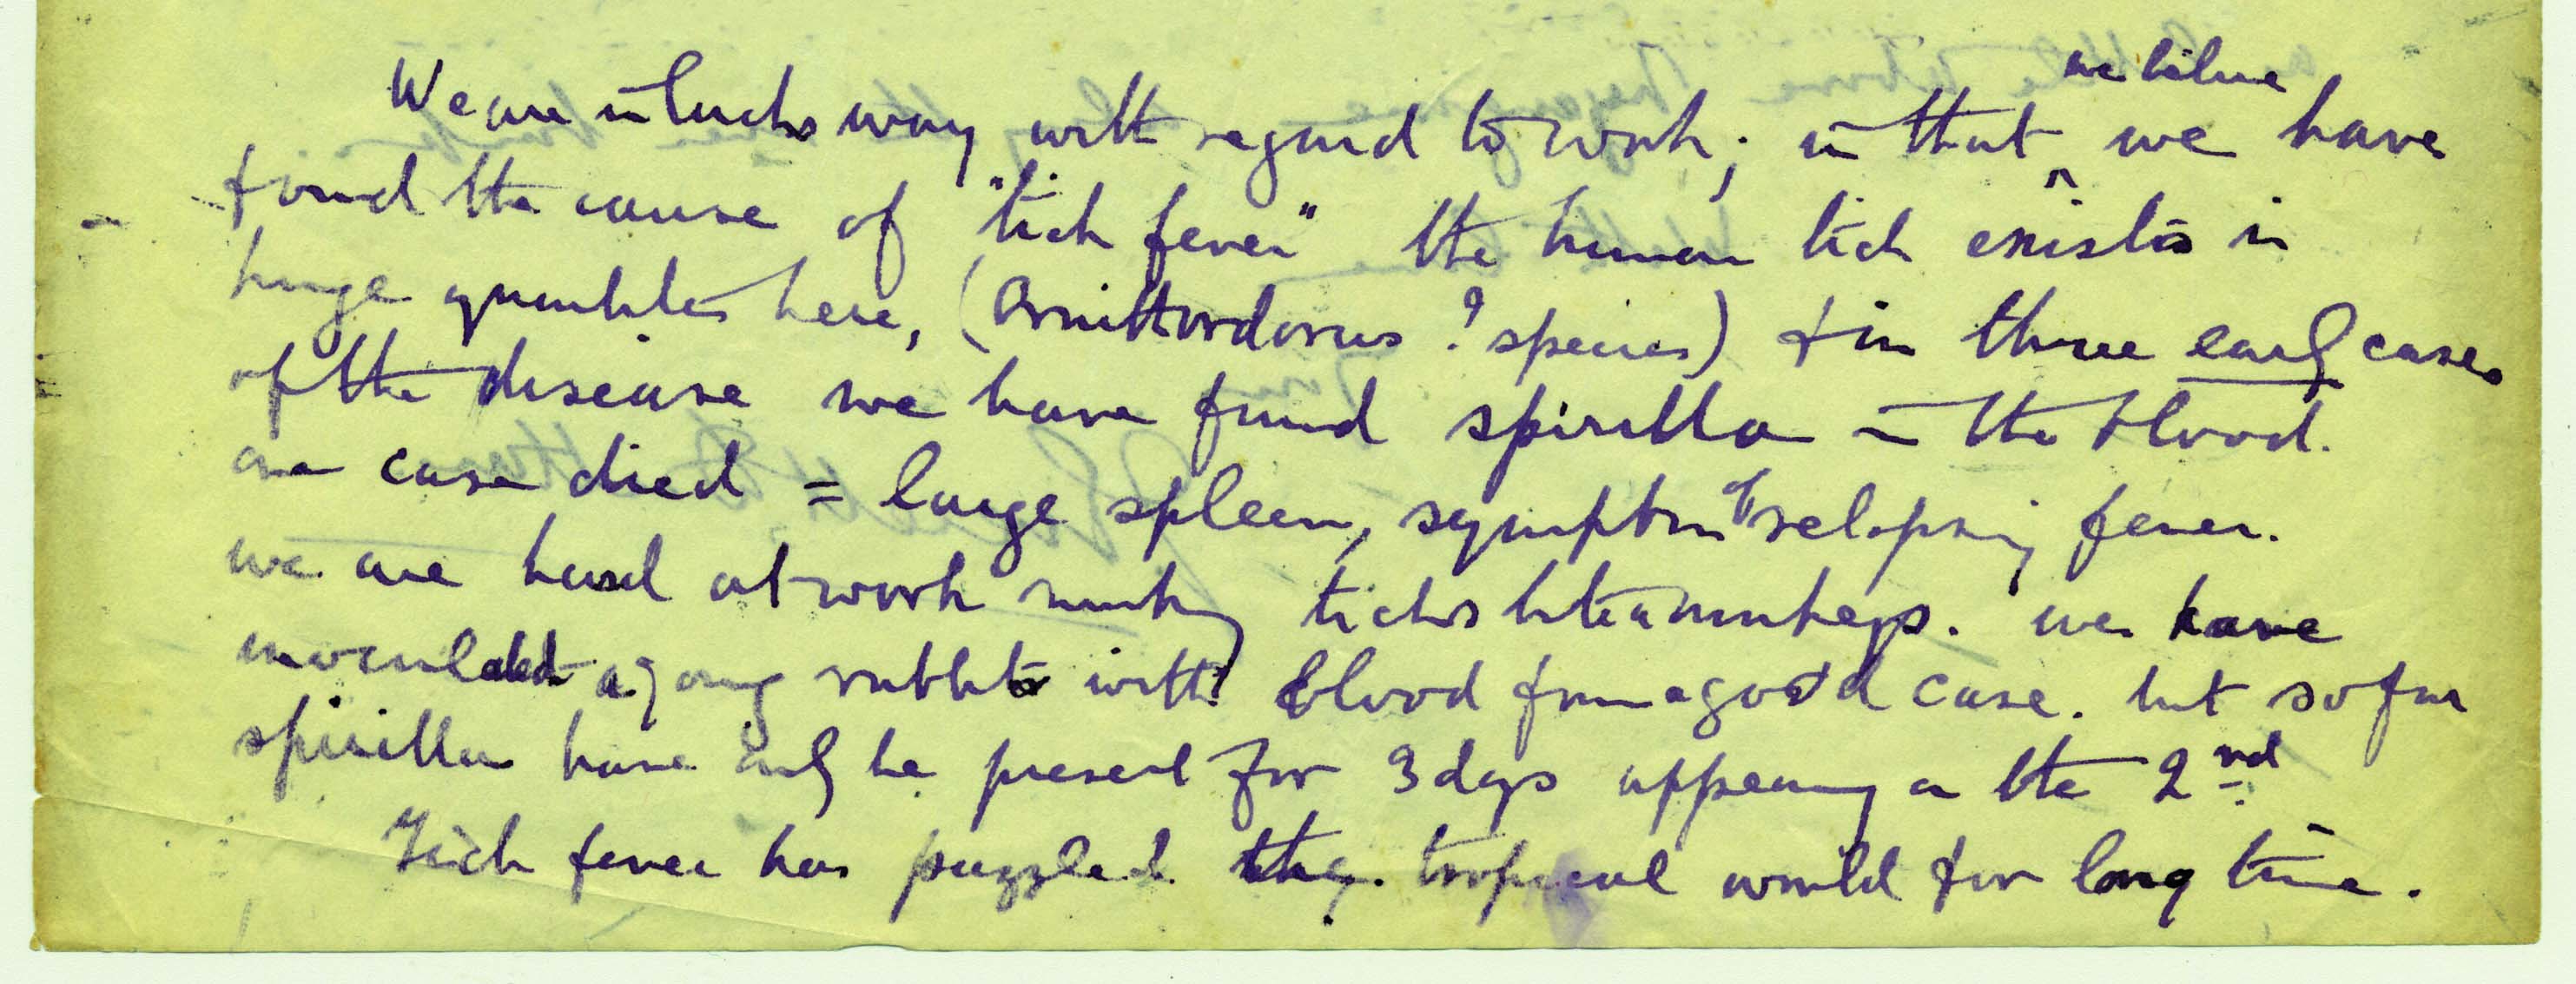 We are in lucks way with regard to work; in that ^ we believe we have
found the cause of "tick fever" the human tick exists in
huge quantities here, (Ornithordorus ? species) & in three early cases
of the disease we have found spirilla in the blood.
one case died = large spleen, symptom of relapsing fever.
we are hard at work making ticks bite monkeys. we have
inoculated a young rabbit with blood from a good case. but so far
spirilla have only be present for 3 days appearing on the 2nd
Tick fever has puzzled the tropical world for long time.